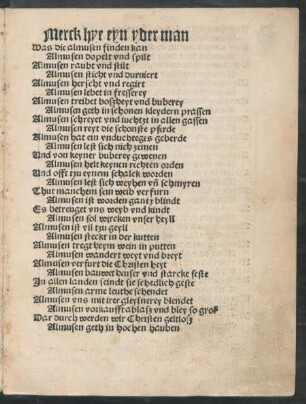 Merck hye eyn yder man
Was die almusen finden kan
Almusen dopelt und spilt
Almusen raubt und stilt
Almusen sticht und durniert
Almusen herscht und regirt
Almusen lebet in fresserey
Almusen treibet boszheyt und buberey
Almusen geth in schonen kleydern prassen
Almusen schreyet und iuchtzt in allen gassen
Almusen reyt die schonste pferde
Almusen hat ein unduchteges geberde
Almusen lest sich nich zemen
Und von keyner buberey gewenen
Almusen helt keynen rechten orden
Und offt tzu eynem schalck worden
Almusen lest sich weyhen un̄ schmyren
Thut manchem sein weib verfurn
Almusen ist worden gantz blindt
Es betreuget uns weyb und kindt
Almusen sol wircken unser heyll
Almusen ist vil tzu geyll
Almusen steckt in der kutten
Almusen tregt heym wein in putten
Almusen wandert weyt und breyt
Almusen verfurt die Christenheyt
Almusen bauwet heuser und starcke feste
In allen landen seindt sie schedlich geste
Almusen arme leuthe schendet
Almusen uns mit irer gleysnerey blendet
Almusen vorkaufft ablasz und bley so grosz
Dar durch werden wir Christen geltlosz
Almusen geth in hochen hauben